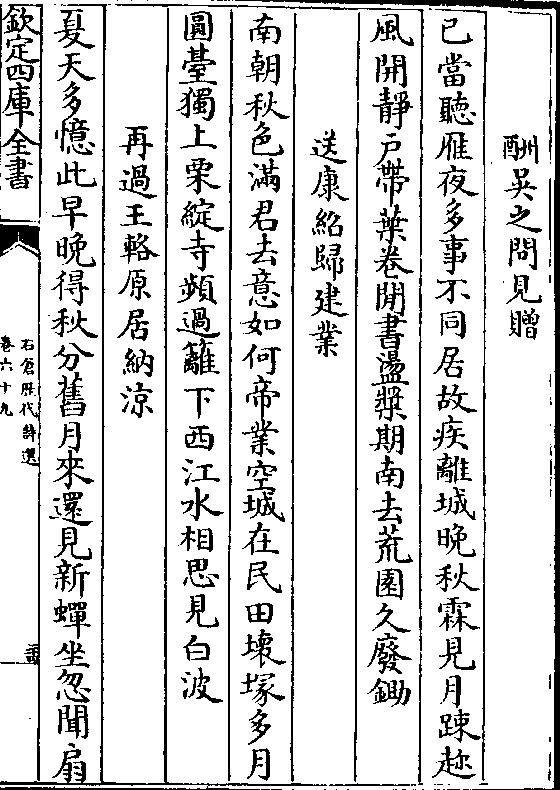 酬吳之問見贈
已當聽雁夜多事不同居故疾離城晚秋霖見月踈趂
風開靜户帶葉卷閒書盪槳期南去荒園久廢鋤
送康紹歸建業
南朝秋色滿君去意如何帝業空城在民田壞塚多月
圓臺獨上栗綻寺頻過籬下西江水相思見白波
再過王輅原居納涼
夏天多憶此早晚得秋分舊月來還見新蟬坐忽聞扇
欽定四庫全書
石倉歴代詩選
卷六十九